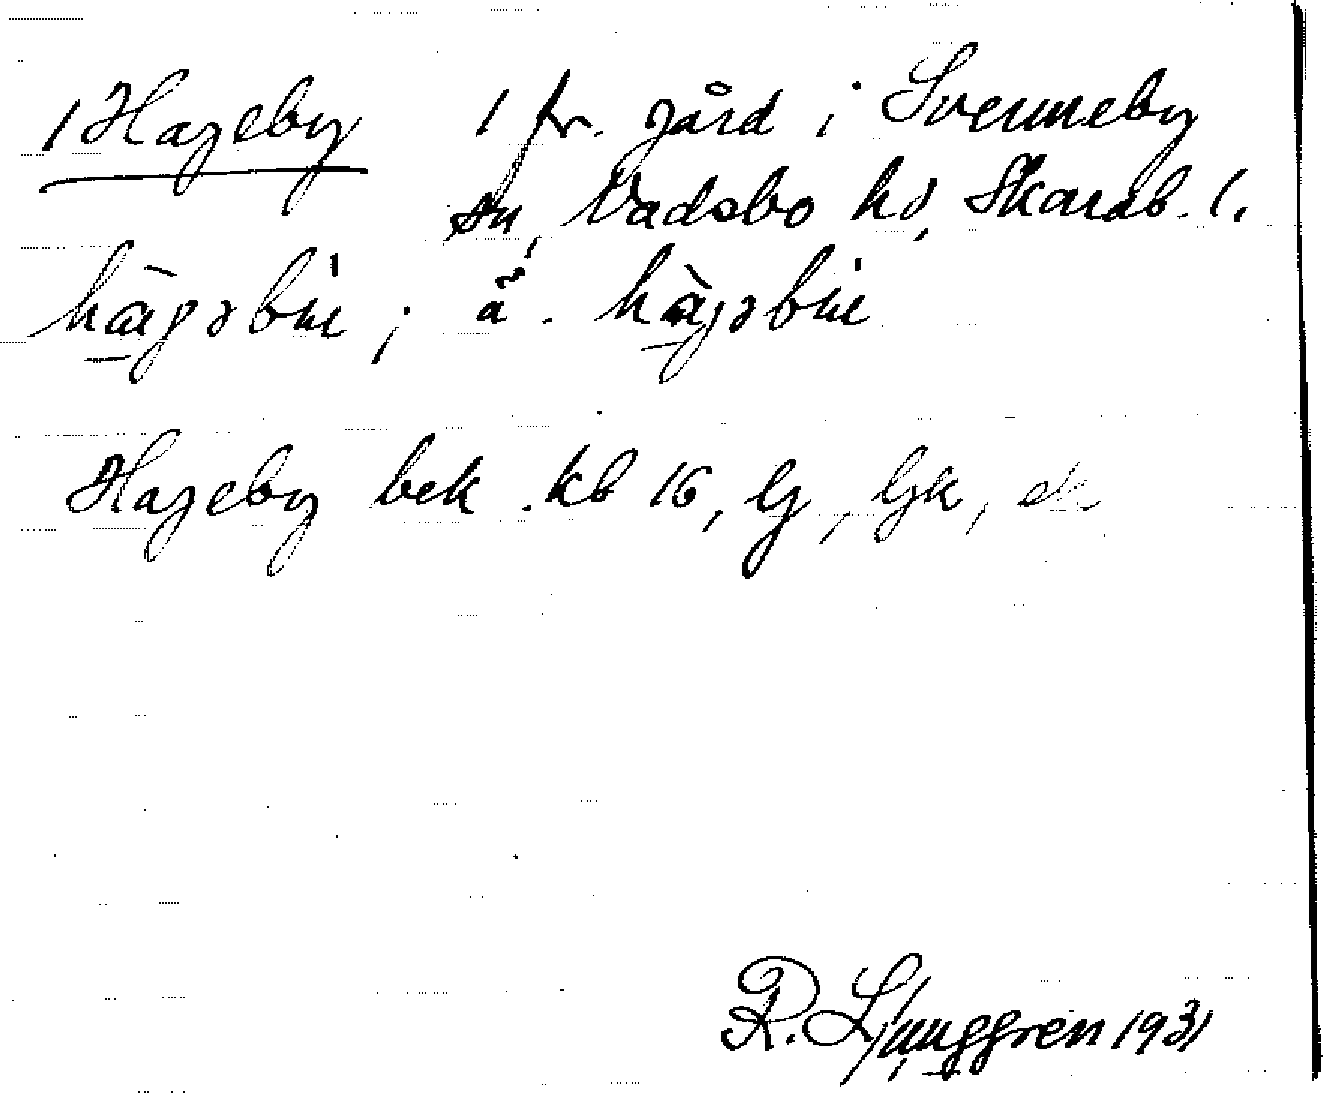 1 Hageby 1 fr. gård i Svenneby
sn, Vadsbo hd, Skarab. l.
Hageby bek. kb 16, lj, ljk, ek
R. Ljunggren 1931